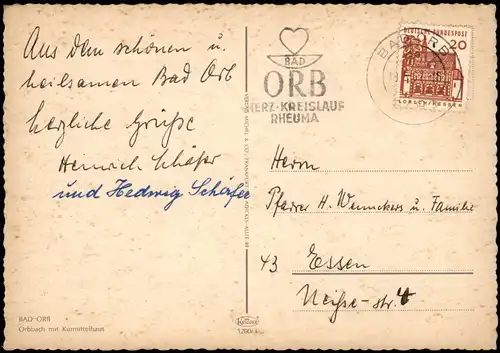 Aus dem schönen u.
heilsamen Bad Orb
herzliche Grüße
Heinrich Schäfer
und Hedwig Schäfer
BAD ORB
Orbbach mit Kurmittelhaus
VERLAG MICHEL & CO., FRANKFURT
1200/
BAD
ORB
HERZ·KREISLAUF
RHEUMA
BAD ORB
DEUTSCHE BUNDESPOST
20
LORSCH/HESSEN
Herrn
Pfarrer H. Wennekers u. Familie
43 Essen
Neiße-str. 4